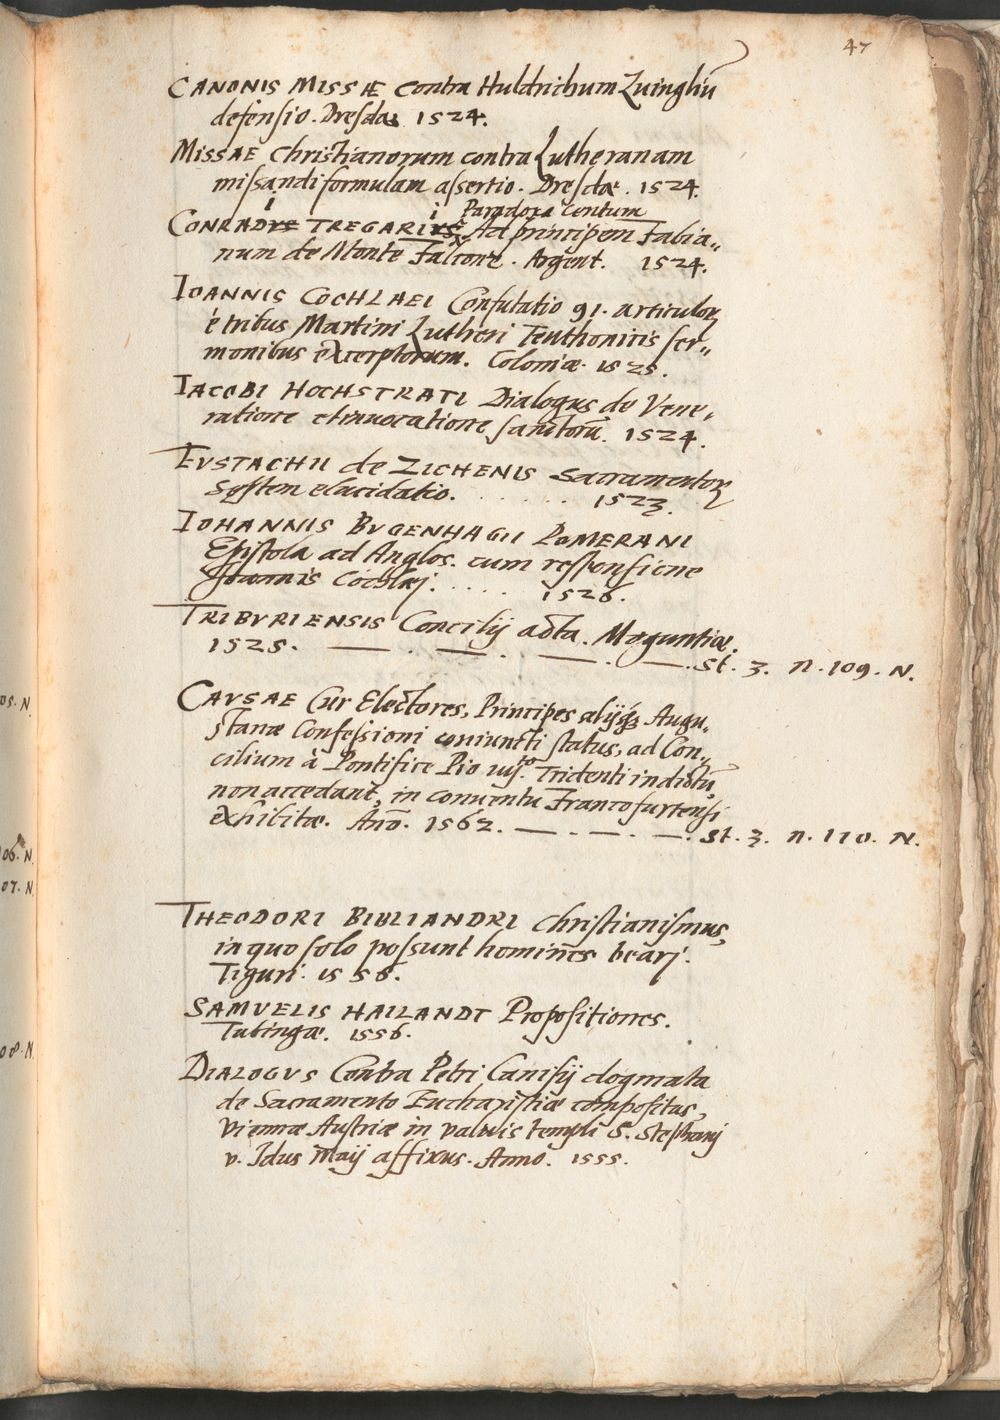 47
CANONIS MISSÆ contra Huldrichum Zuingliū
defensio. Dresdæ 1524.
MISSAE Christianorum contra Lutheranam
missandi formulam assertio. Dresdæ. 1524.
i i Paradoxa Centum
CONRADVS TREGARIVS Ad principem Fabia„
num de Monte Falcone. Argent. 1524.
IOANNIS COCHLAEI Confutatio 91. articulorꝫ
è tribus Martini Lutheri Teuthonicis ser„
monibus excerptorum. Coloniæ. 1525.
IACOBI HOCHSTRATI Dialogus de Vene,
ratione et inuocatione sanctorū. 1524.
EVSTACHII de ZICHENIS Sacramentorꝫ
septem elucidatio. . . . . . . 1523.
IOHANNIS BVGENHAGII POMERANI
Epistola ad Anglos. cum responsione
Joannis Cochlæj. . . . . . 1526.
TRIBVRIENSIS Concilij acta. Moguntiæ.
1525. — . — . — . — . st. 3. n. 109. N.
CAVSAE Cur Electores, Principes alijqꝫ Augu„
stanæ Confessioni coniuncti status, ad Con„
cilium à Pontifice Pio iiijto. Tridenti indictū,
non accedant, in conuentu Francofurtensi
exhibitæ. Año. 1562. — . — . — . st. 3. n. 110. N.
THEODORI BIBLIANDRI Christianismus,
in quo solo possunt homines bearj.
Tiguri. 1556.
SAMVELIS HAILANDT Propositiones.
Tubingæ. 1556.
DIALOGVS Contra Petri Canisij dogmata
de Sacramento Eucharistiæ compositus,
Viennæ Austriæ in valuis templi S. Stephanj
v. Idus Maij affixus. Anno. 1555.
05. N.
06. N.
07. N.
08. N.